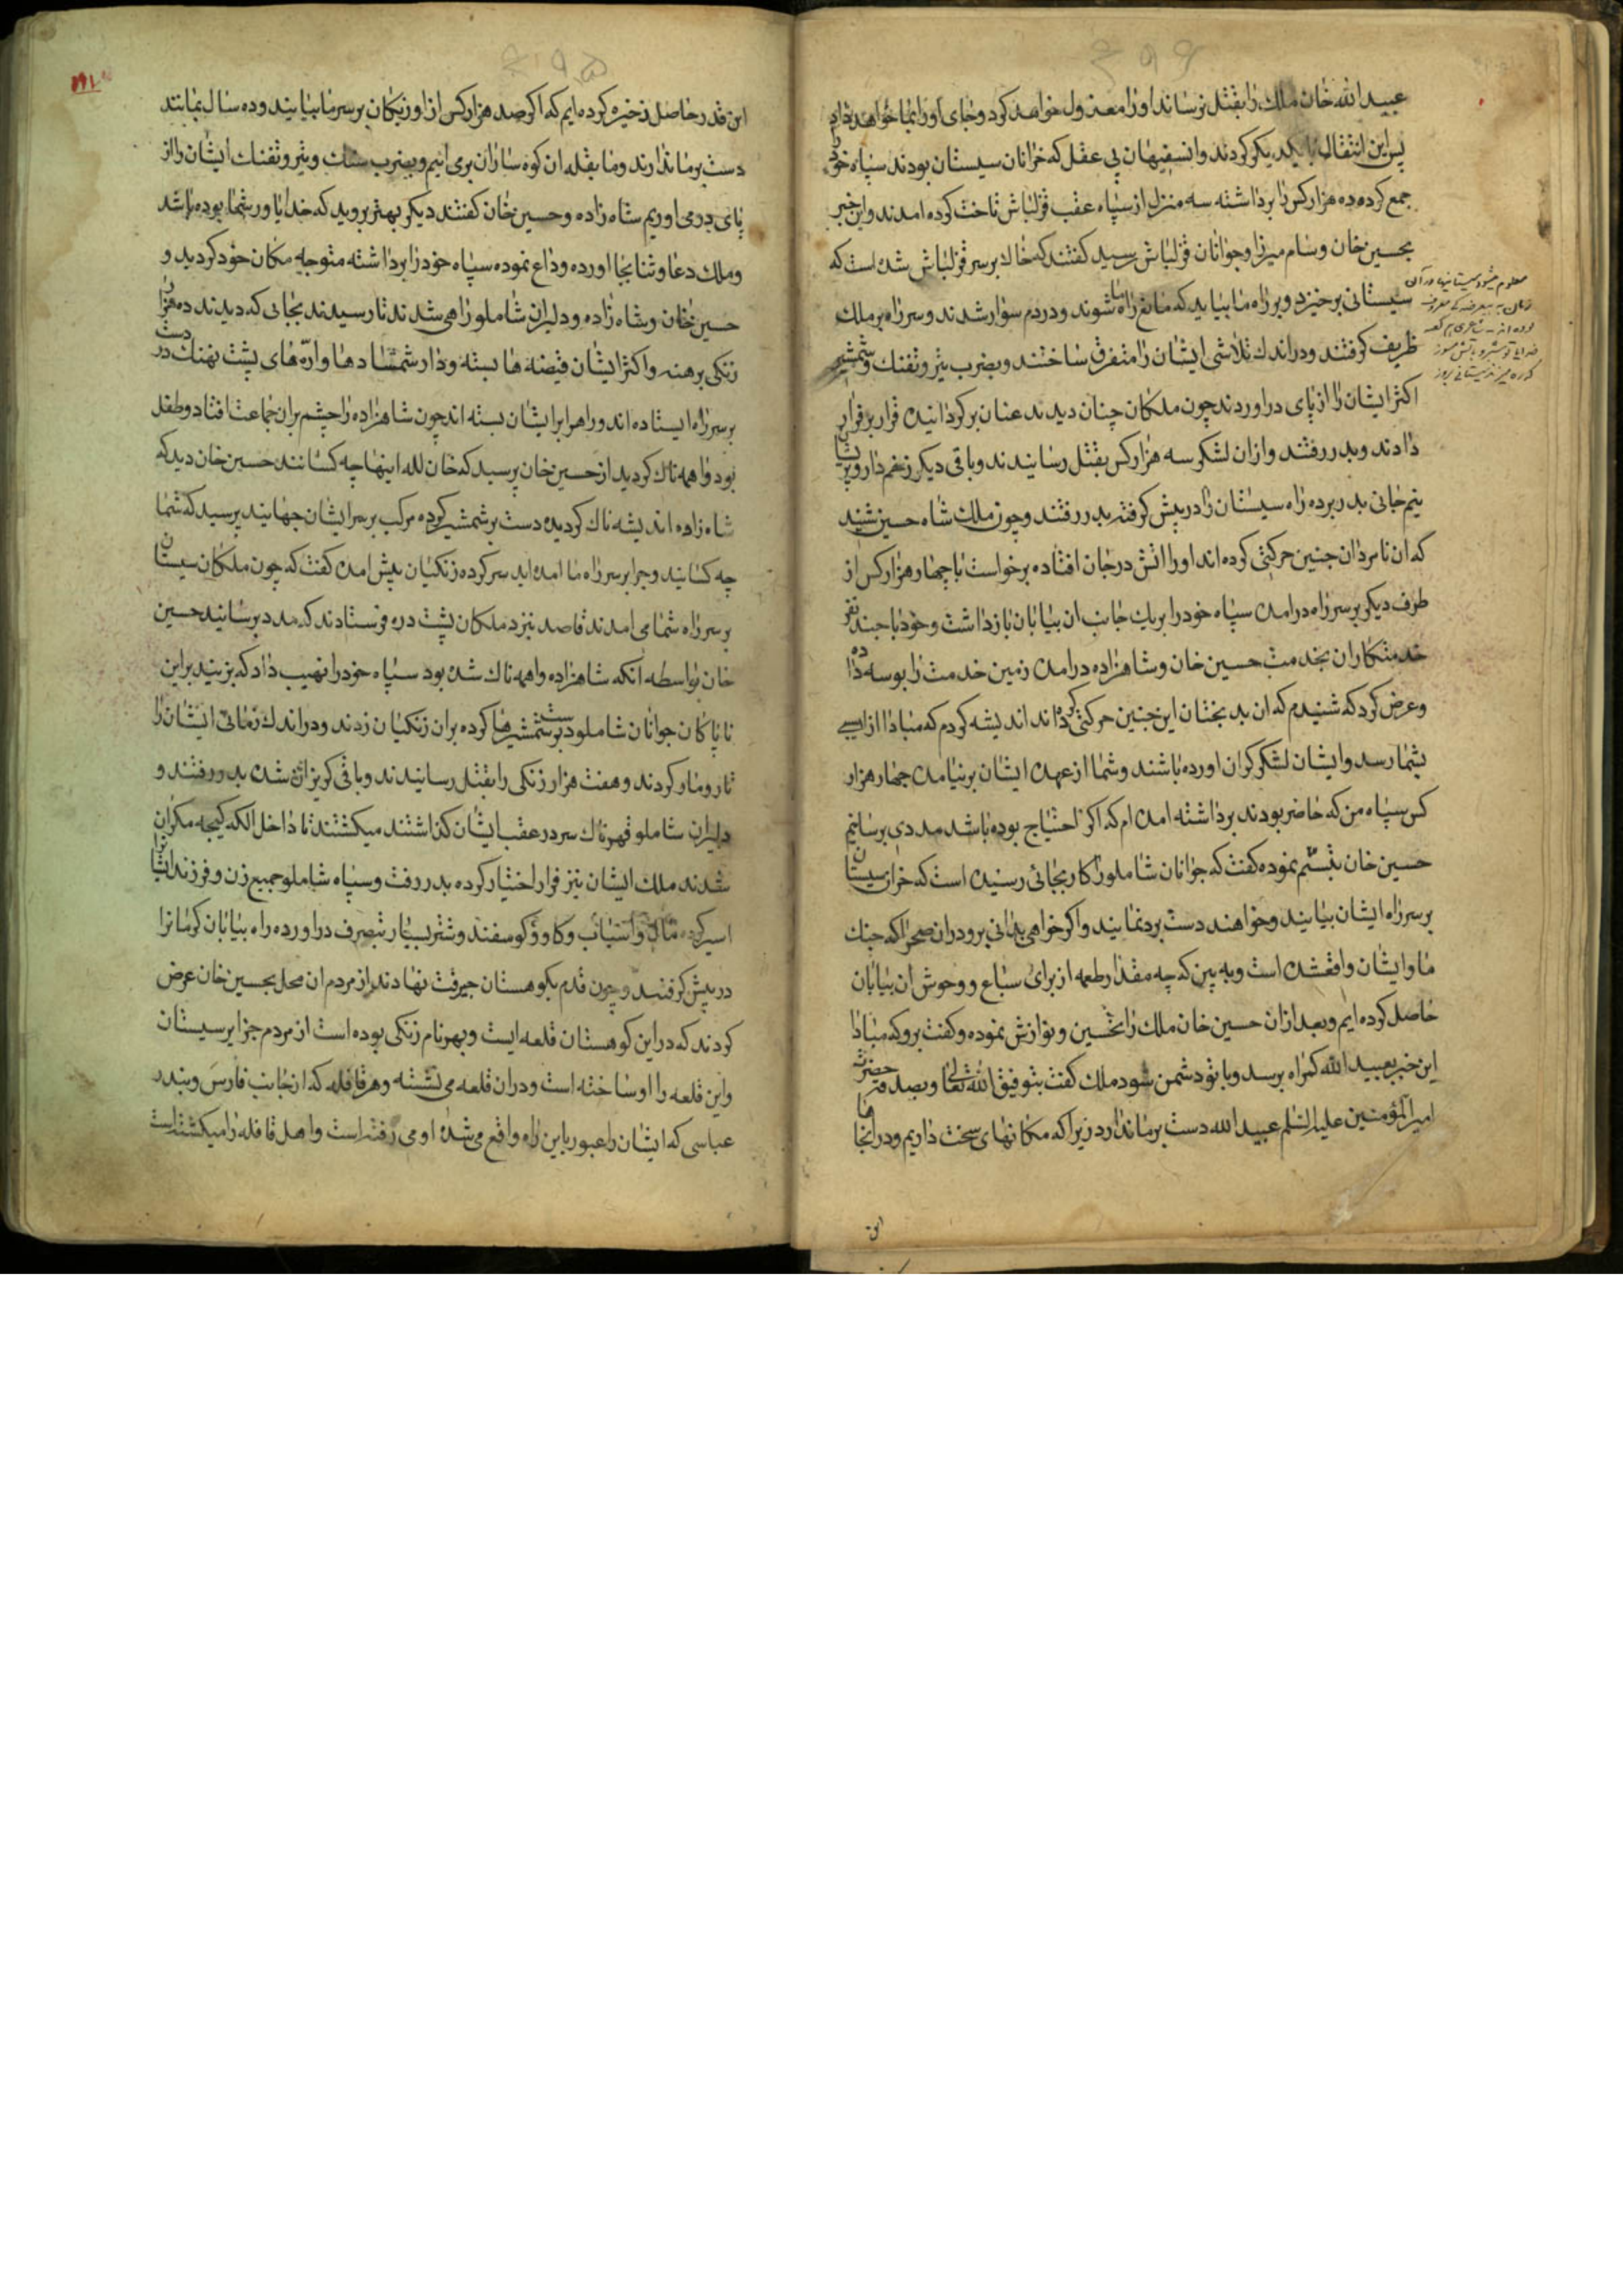 عبید الله خان ملک را بقتل نرساند او را معزول خواهد کرد و جای او را بما خواهد داد
پس این انتقال با یکدیکر کردند و انسفیهان بی عقل که خرانان سیستان بودند سپاه خود را
جمع کرده ده هزار کس را برداشته سه منزل از سپاه عقب قزلباش تاخت کرده امدند و این خبر
بحسین خان و سام میرزا و جوانان قزلباش رسید کفتند که خاک بر سر قزلباش شده است که
سیستانی برخیزد و بر راه ما بیاید که مانع راه ما شوند و در دم سوار شدند و سر راه بر ملک
ظریف کرفتند و در اندک تلاشی ایشان را متفرق ساختند و بضرب تیر و تفنک و شمشیر
اکثر ایشان را از پای در اوردند چون ملکان چنان دیدند عنان برکردانیده قرار بر فرار
دادند و بدر رفتند و ازان لشکر سه هزار کس بقتل رسانیدند و باقی دیکر زخم دار و پریشان
نیم جانی بدر برده راه سیستان را در پیش کرفته بدر رفتند و چون ملک شاه حسین شنید
که ان نامردان چنین حرکتی کرده اند او را اتش در جان افتاده برخواست با چهار هزار کس از
طرف دیکر بر سر راه در امده سپاه خود را بر یک جانب ان بیابان بازداشت و خود با چند نفر
خدمتکاران بخدمت حسین خان و شاهزاده در امده زمین خدمت را بوسه داده
و عرض کرد که شنیدم که ان بد بختان این چنین حرکتی کرده اند اندیشه کردم که مبادا ازاسیبی
بشما رسد و ایشان لشکر کران اورده باشند و شما از عهده ایشان برنیامده چهار هزار
کس سپاه من که حاضر بودند برداشته امده ام که اکر احتیاج بوده باشد مددی برسانیم
حسین خان تبسم نموده کفت که جوانان شاملو را کار بجائی رسیده است که خران سیستان
بر سر راه ایشان بیایند و خواهند دست برد نمایند و اکر خواهی بدانی برو در ان صحرا که جنک
ما و ایشان واقعشده است و به بین که چه مقدار طعمه از برای سباع و وحوش ان بیابان
حاصل کرده ایم و بعد ازان حسین خان ملک را تحسین و نوازش نموده و کفت برو که مبادا
این خبر بعبید الله کمراه برسد و با تو دشمن شود ملک کفت بتوفیق الله تعالی و بصدقه حضرت
امیر المؤمنین علیه السلم عبید الله دست بر ما ندارد زیرا که مکانهای سخت داریم و در انجا ها
معلوم میشود سیستانیها در آن
زمان به بیعرضه کی معروف
بوده اند
این
این قدر حاصل ذخیره کرده ایم که اکر صد هزار کس از اوزبکان بر سر ما بیایند و ده سال بمانند
دست بر ما ندارند و ما بقله ان کوه ساران بر می ائیم و بضرب سنک و تیر و تفنک ایشان را از
پای در می اوریم شاه زاده و حسین خان کفتند دیکر بهتر بروید که خدا یاور شما بوده باشد
و ملک دعا و ثنا بجا اورده وداع نموده سپاه خود را برداشته متوجه مکان خود کردید و
حسین خان و شاه زاده و دلیران شاملو راهی شدند تا رسیدند بجائی که دیدند ده هزار
زنکی برهنه و اکثر ایشان قبضه ها بسته و دار شمشادها و ارّه های پشت نهنک در دست
بر سر راه ایستاده اند و راه را بر ایشان بسته اند چون شاهزاده را چشم بران جماعت افتاد و طفل
بود واهمه ناک کردید از حسین خان پرسید که خان لله اینها چه کسانند حسین خان دید که
شاه زاده اندیشه ناک کردیده دست بر شمشیر کرده مرکب بر سر ایشان جهانید پرسید که شما
چه کسانید و چرا بر سر راه ما امده اید سر کرده زنکیان پیش امده کفت که چون ملکان سیستان
بر سر راه شما می امدند قاصد نیزد ملکان پشت دره فرستادند که مدد برسانید حسین
خان بواسطه انکه شاهزاده واهمه ناک شده بود سپاه خود را نهیب داد که بزنید براین
ناپاکان جوانان شاملو دست بر شمشیرها کرده بران زنکیان زدند و در اندک زمانی ایشان را
تار و مار کردند و هفت هزار زنکی را بقتل رسانیدند و باقی کریزان شده بدر رفتند و
دلیران شاملو قهرناک سر در عقب ایشان کذاشتند میکشتند تا داخل الکه کیجه مکران
شدند ملک ایشان نیز فرار اختیار کرده بدر رفت و سپاه شاملو جمیع زن و فرزند ایشانرا
اسیر کرده مال و اسباب و کاو و کوسفند و شتر بسیار بتصرف در اورده راه بیابان کرمانرا
در پیش کرفتند و چون قدم بکوهستان جیرفت نهادند از مردم ان محل بحسین خان عرض
کردند که در این کوهستان قلعه ایست و بهرنام زنکی بوده است از مردم جزایر سیستان
و این قلعه را او ساخته است و در ان قلعه می نشسته و هر قافله که از جانب فارس و بندر
عباسی که ایشان را عبور باین راه واقع می شده او می رفته است و اهل قافله را میکشته است